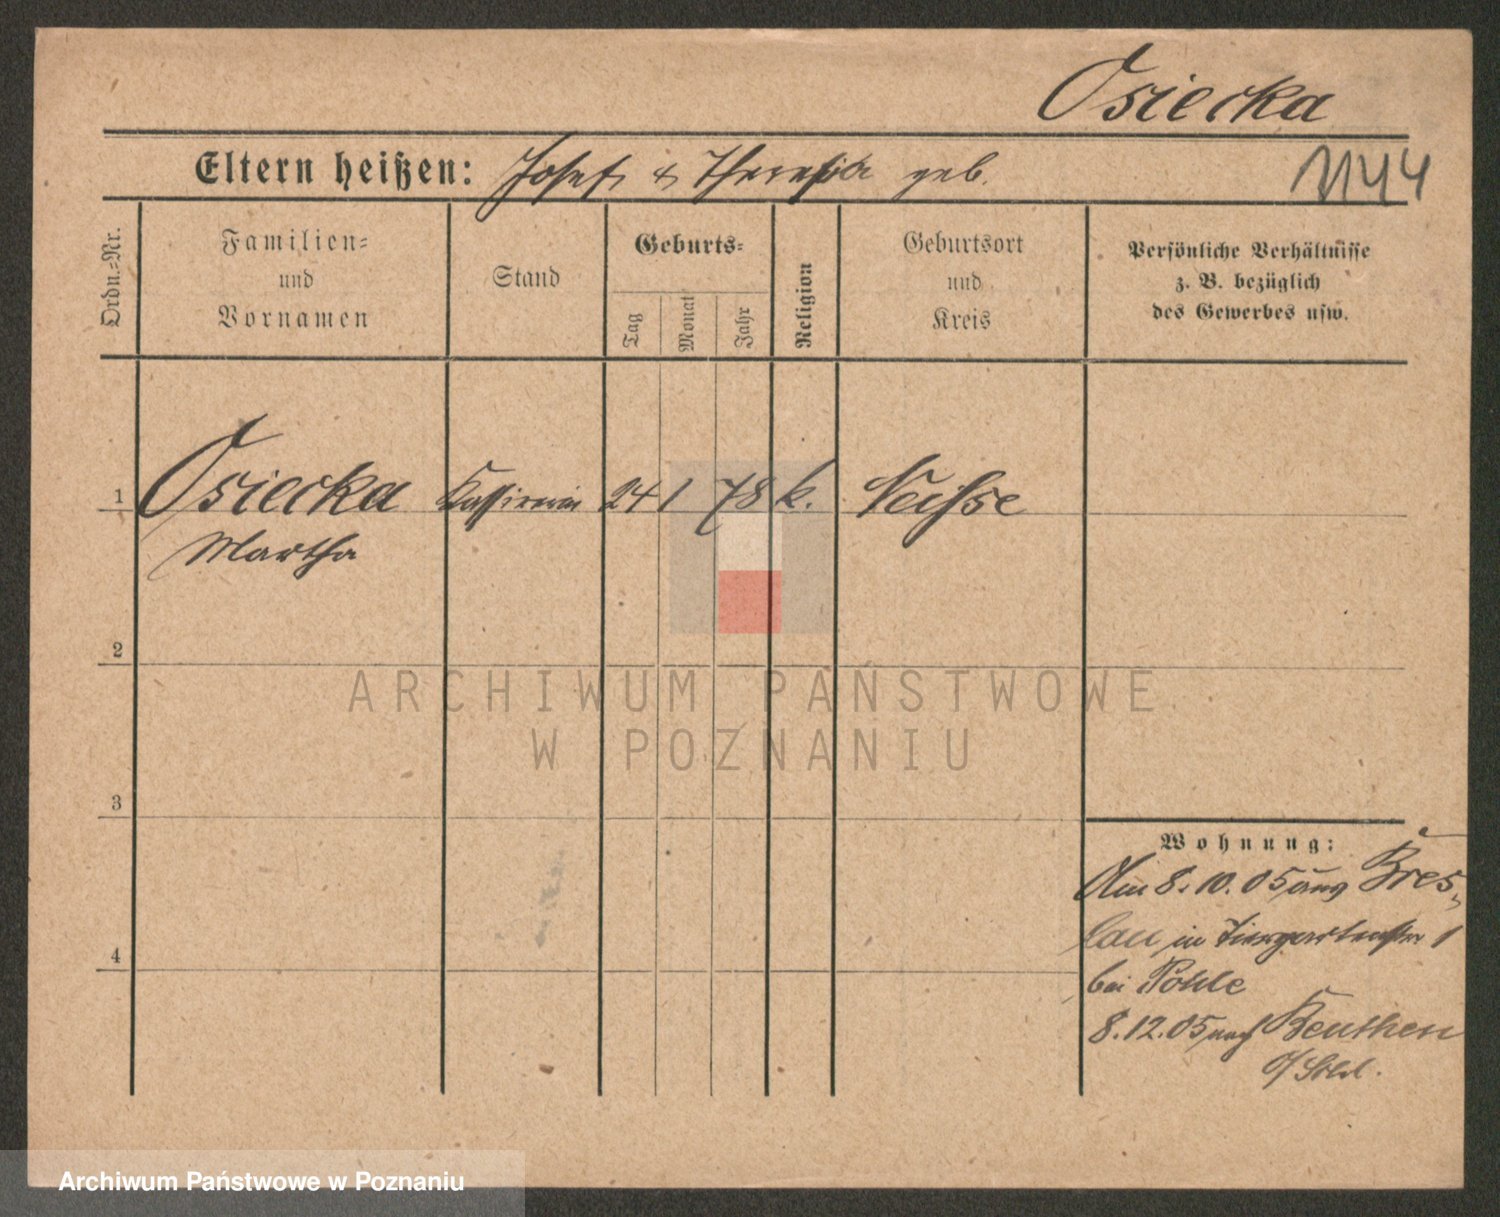 Osiecka
Eltern heißen: Josef & Theresia geb.
1144
Ordn.=Nr.
Familien=
und
Vornamen
Stand
Geburts=
Tag
Monat
Jahr
Religion
Geburtsort
und
Kreis
Persönliche Verhältnisse
z. B. bezüglich
des Gewerbes usw.
1 Osiecka Kassirerin 24 1 78 k. Neisse
Martha
2
ARCHIWUM PAŃSTWOWE
W POZNANIU
3
Wohnung:
Am 8. 10. 05 aus Bres-
lau in Tiergartenstr 1
4
bei Pohle
8. 12. 05 nach Beuthen
o/Schl.
Archiwum Państwowe w Poznaniu